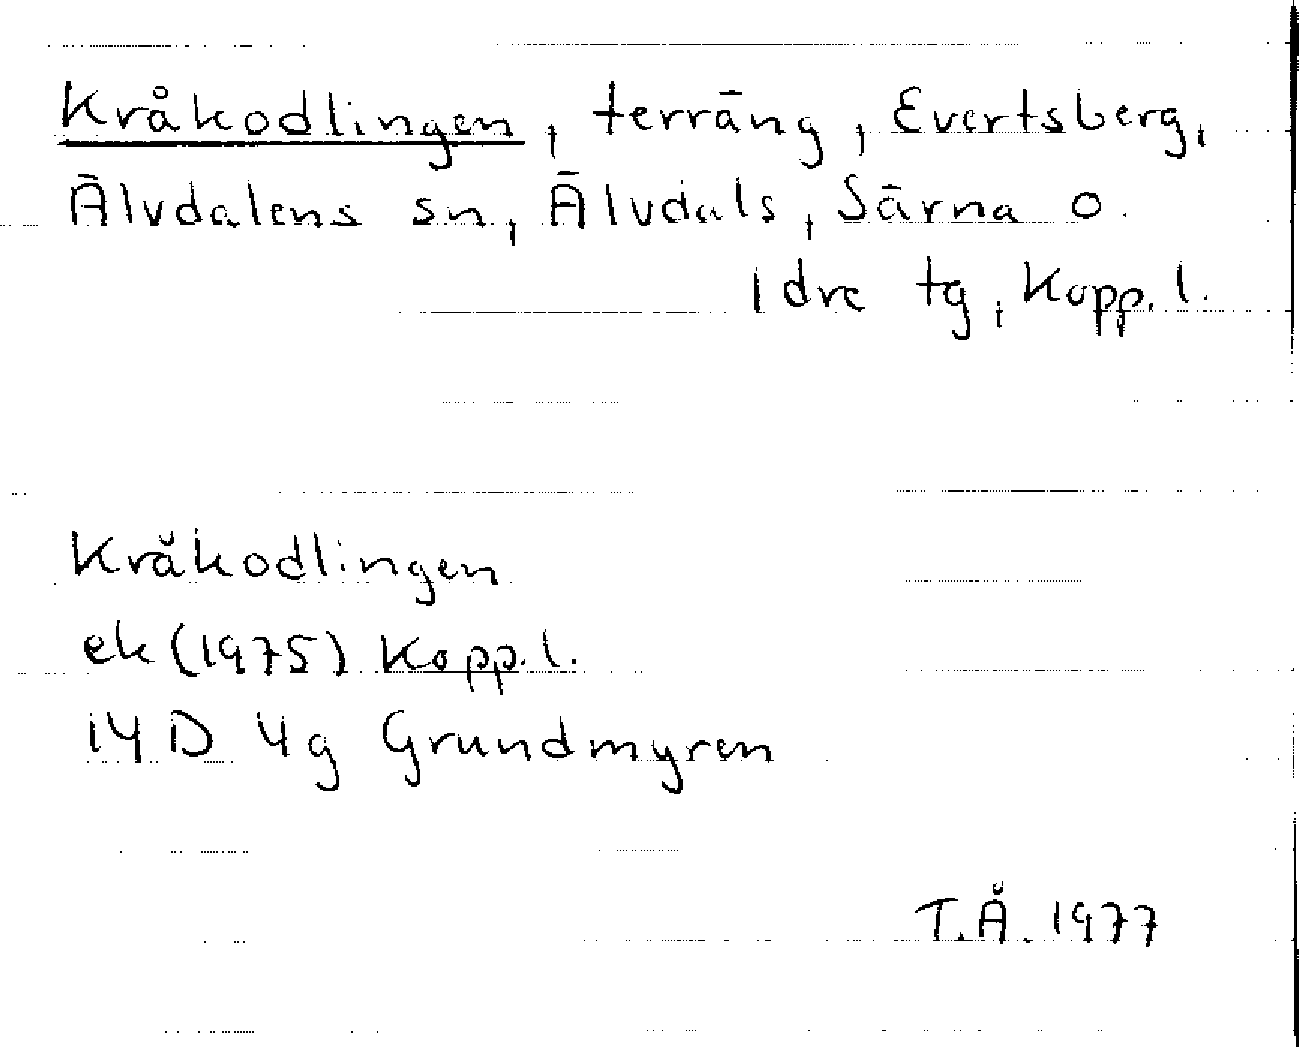 Kråkodlingen, terräng, Evertsberg,
Älvdalens sn, Älvdals, Särna o.
Idre tg, Kopp. l.
Kråkodlingen
ek (1975) Kopp. l.
14 D 4g Grundmyren
T.Å. 1977